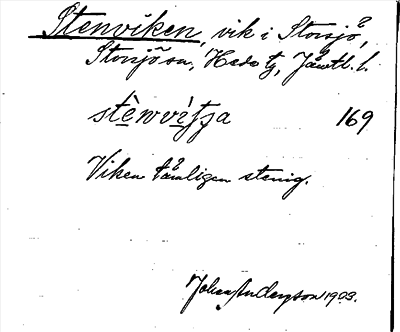 Stenviken, vik i Storsjö,
Storsjö sn, Hede tg, Jämtl. l.
stènvìtʃa 169
Viken tämligen stenig.
Johan Anderson 1903.